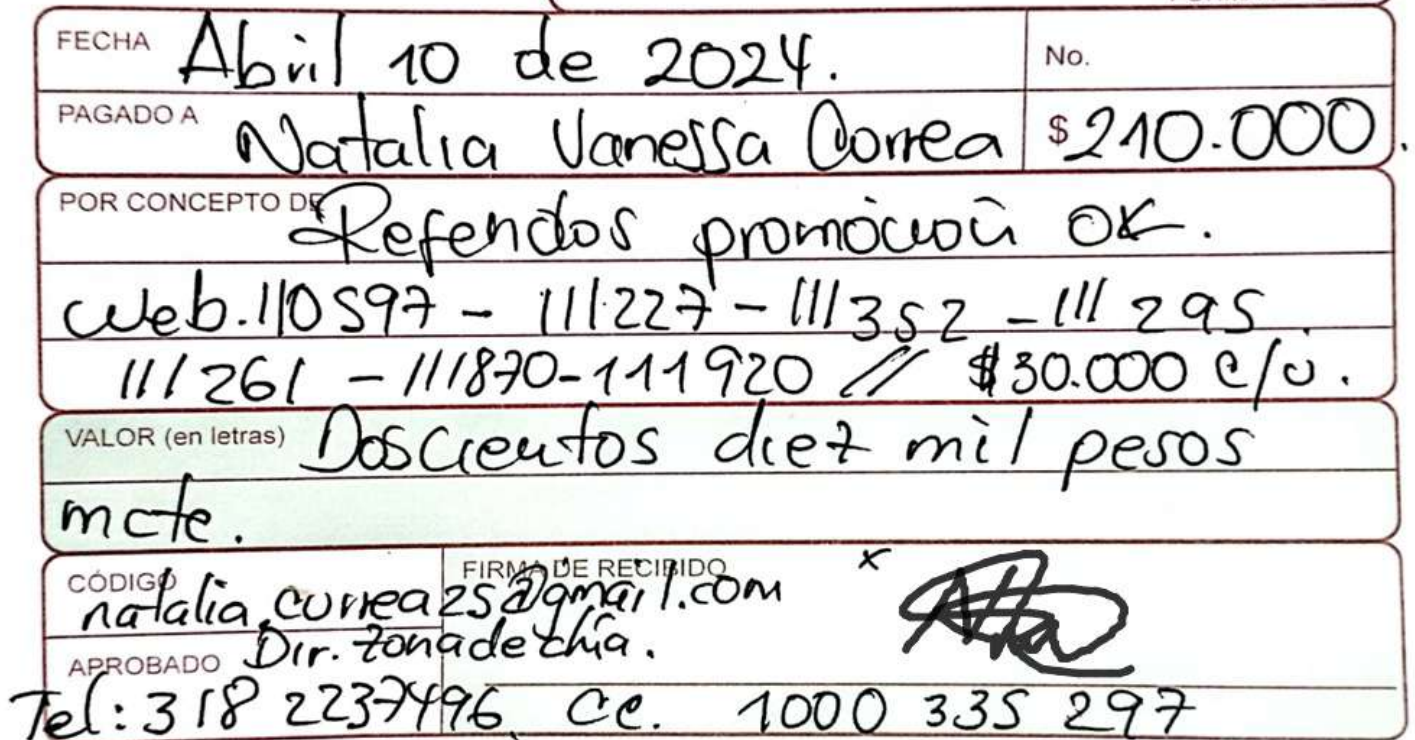 FECHA Abril 10 de 2024. No.
PAGADO A Natalia Vanessa Correa $ 210.000.
POR CONCEPTO DE Referidos promoción OK.
Web. 110597 - 111227 - 111352 - 111295.
111261 - 111870 - 111920 // $30.000 c/u.
VALOR (en letras) Doscientos diez mil pesos
mcte.
CÓDIGO FIRMA DE RECIBIDO x
natalia.correa25@gmail.com
APROBADO Dir. zona de chía.
Tel: 318 2237496 CC. 1000 335 297